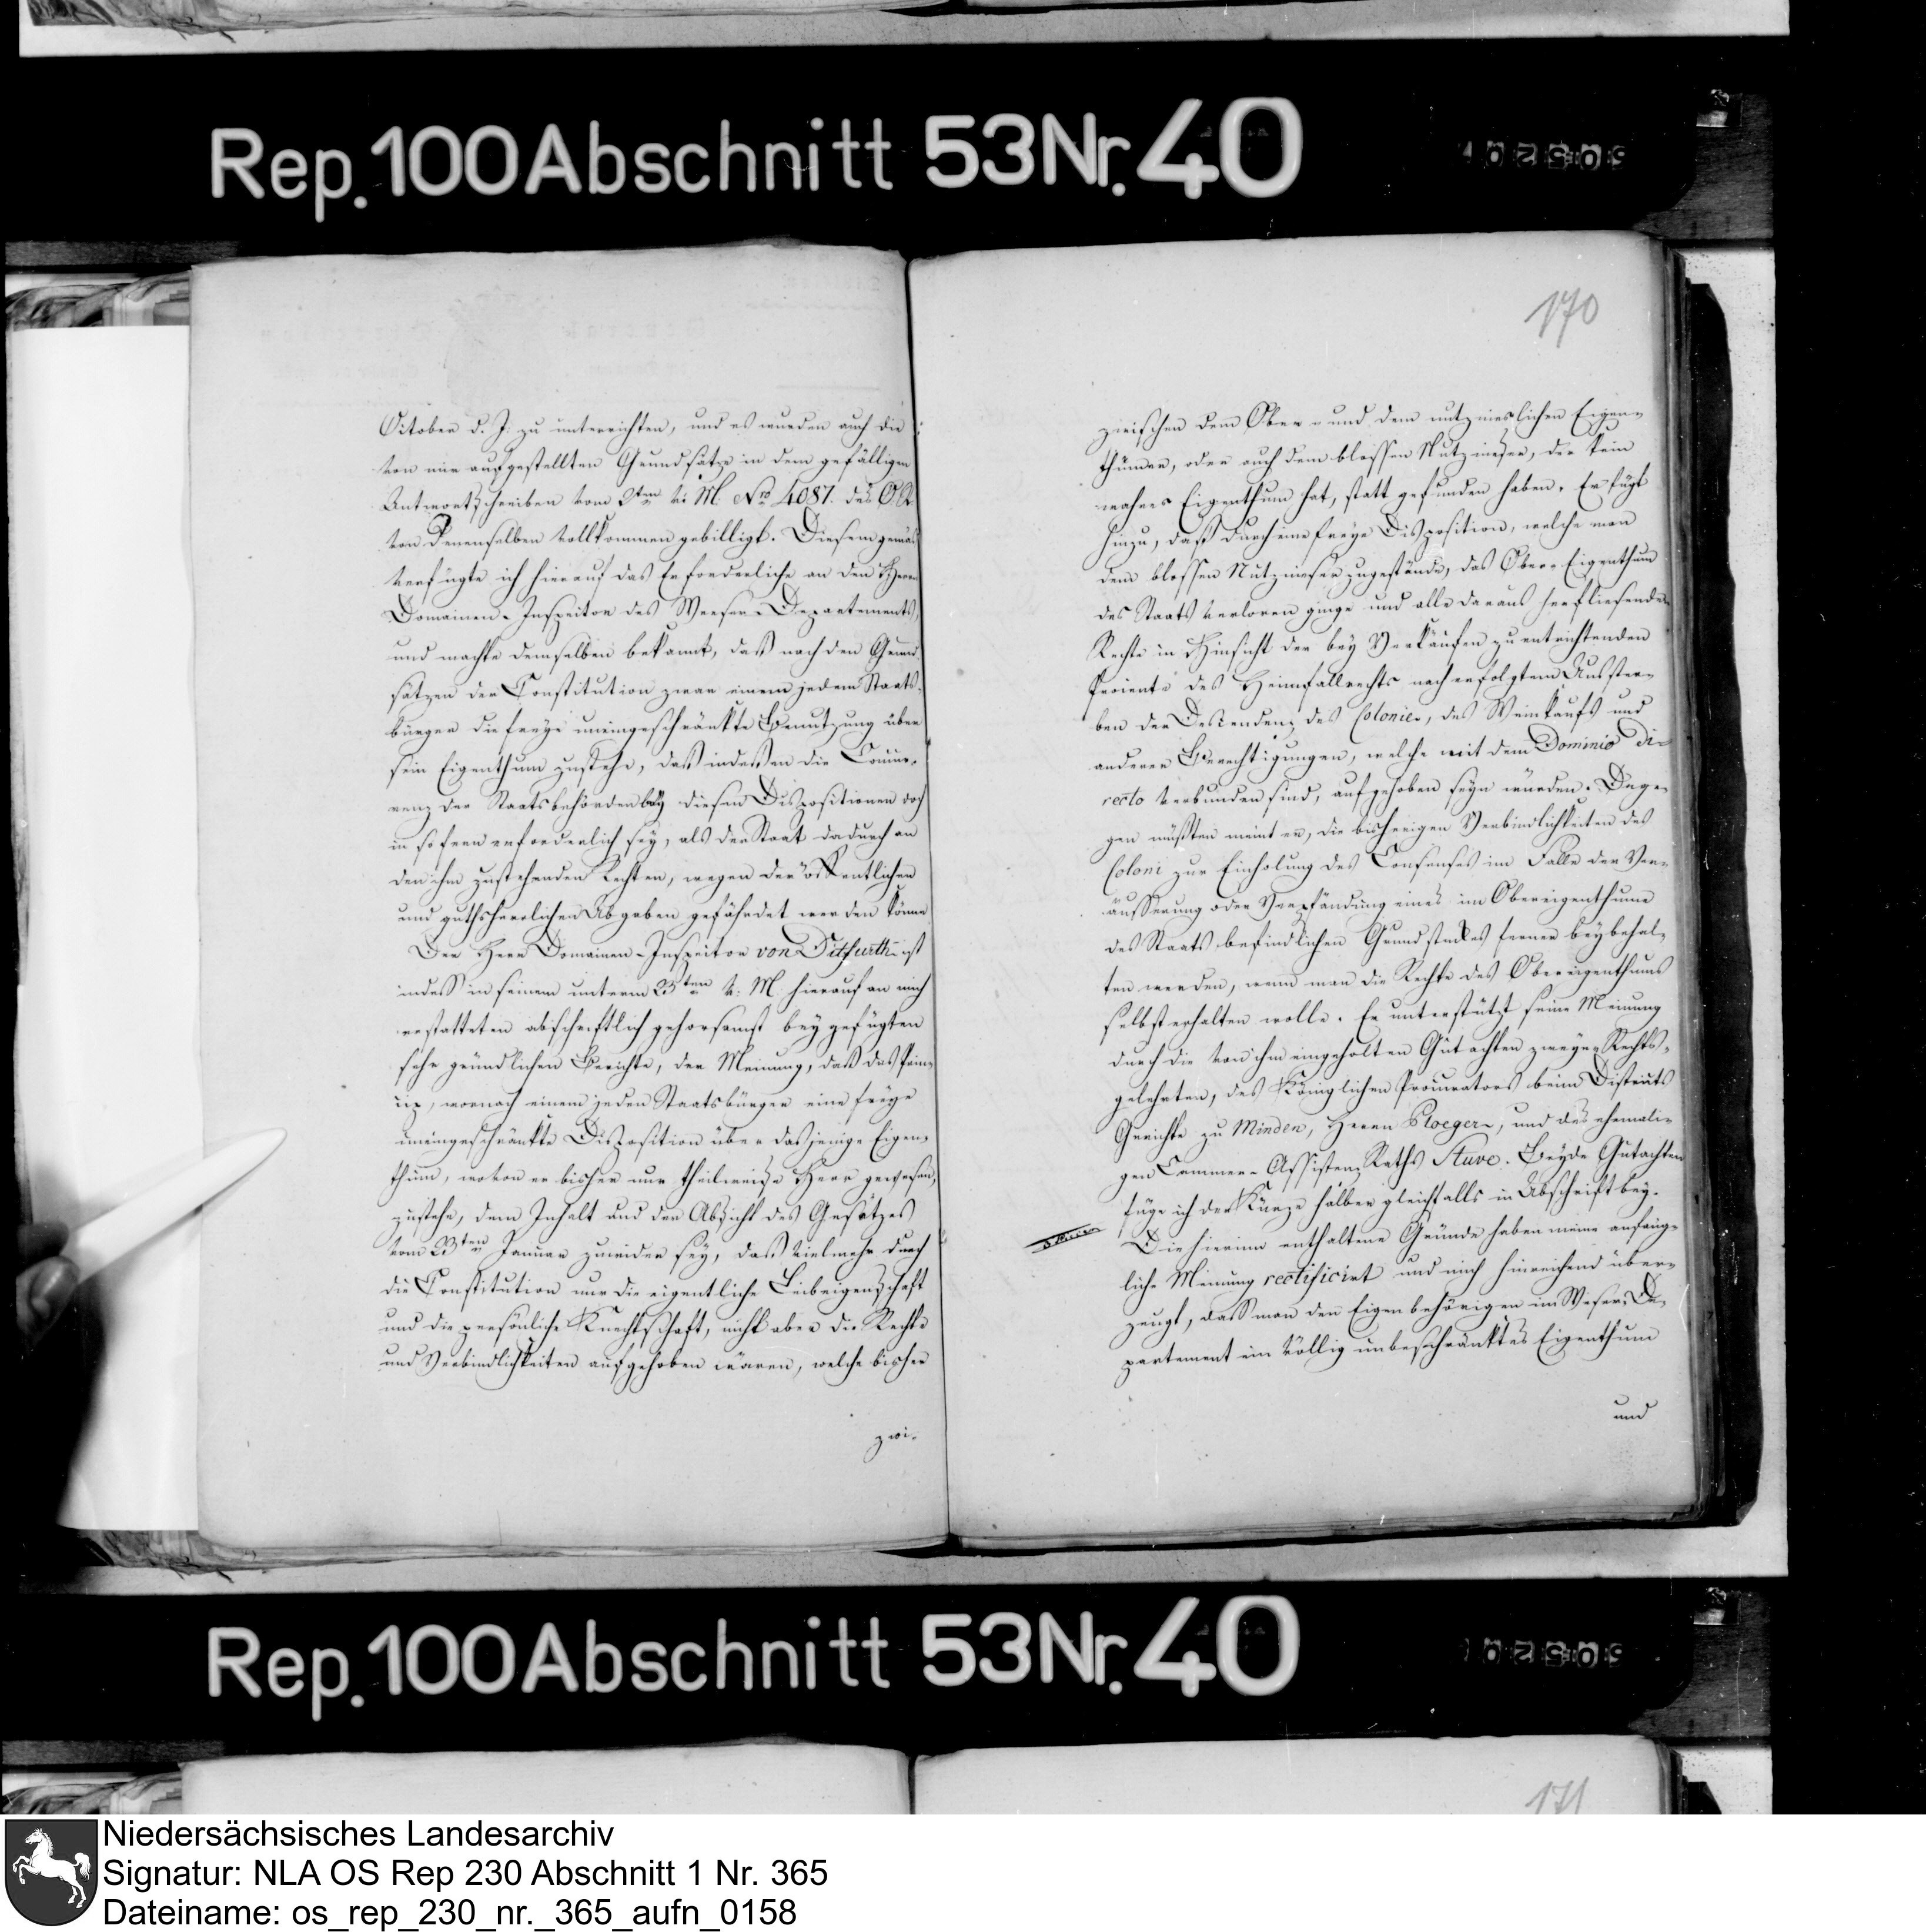 Rep. 100 Abschnitt 53 Nr. 40
October d. J. zu unterrichten, und es wurden auch die
von mir aufgestellten Grundsätze in dem gefälligen
Antwortschreiben vom 9ten v. M. No 4087. des
von Denenselben vollkommen gebilligt. Diesem gemäs
verfügte ich hierauf das Erforderliche an den Herrn
Domainen-Inspector des Weser-Departements,
und machte demselben bekannt, daß nach den Grund-
sätzen der Constitution zwar einem jedem Staats-
bürger die freye uneingeschränkte Benutzung über
sein Eigenthum zustehe, daß indeßen die Concur-
renz der Staatsbehörden bey diesen Dispositionen doch
in so fern erforderlich sey, als der Staat dadurch an
den ihm zustehenden Rechten, wegen der öffentlichen
und guthsherrlichen Abgaben gefährdet werden könne
Der Herr Domainen-Inspector von Ditfurth ist
indeß in seinem unterm 25ten v. M. hierauf an mich
erstatteten abschriftlich gehorsamst beygefügten
sehr gründlichen Berichte, der Meinung, daß das Prin-
cip, wornach einem jeden Staatsbürger eine freye
uneingeschränkte Disposition über dasjenige Eigen-
thum, wovon er bisher nur theilweise Herr gewesen,
zustehe, dem Inhalt und der Absicht des Gesetzes
vom 23ten Januar zuwider sey, daß vielmehr durch
die Constitution nur die eigentliche Leibeigenschaft
und die persönliche Knechtschaft, nicht aber die Rechte
und Verbindlichkeiten aufgehoben wären, welche bisher
zwi-
170
zwischen dem Ober- und dem nutznieslichen Eigen-
thümer, oder auch dem blossen Nutznieser, der kein
wahres Eigenthum hat, statt gefunden haben. Er fügt
hinzu, daß durch eine freye Disposition, welche man
dem blossen Nutznieser zugestände, das Ober-Eigenthum
des Staats verloren ginge und alle daraus herfliesenden
Rechte in Hinsicht der bey Verkäufen zu entrichtenden
Procente des Heimfallrechts nach erfolgtem Ausster-
ben der Descendenz des Colonie, des Weinkaufs und
anderer Berechtigungen, welche mit dem Dominio di-
recto verbunden sind, aufgehoben seyn würden. Dage-
gen müßten meint er, die bisherigen Verbindlichkeiten des
Coloni zur Einholung des Consenses im Falle der Ver-
äusserung oder Verpfändung eines im Obereigenthume
des Staats befindlichen Grundstückes ferner beybehal-
ten werden, wenn man die Rechte des Obereigenthums
selbst erhalten wolle. Er unterstützt seine Meinung
durch die von ihm eingeholten Gutachten zweyer Rechts-
gelehrten, des Königlichen Procurators beim Districts
Gerichte zu Minden, Herrn Ploeger, und des ehemali-
gen Cammer-Assistenz Raths Stuve. Beyde Gutachten
füge ich der Kürze halber gleichfalls in Abschrift bey.
Die hierinn enthaltene Gründe haben meine anfäng-
liche Meinung rectificirt und mich hinreichend über-
zeugt, daß man den Eigenbehörigen im Weser-De-
partement ein völlig unbeschränktes Eigenthum
und
Rep. 100 Abschnitt 53 Nr. 40
171
Niedersächsisches Landesarchiv
Signatur: NLA OS Rep 230 Abschnitt 1 Nr. 365
Dateiname: os_rep_230_nr._365_aufn_0158